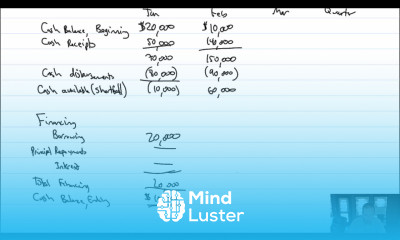 Jan Feb Mar Quarter
Cash Balance, Beginning $20,000 $10,000
Cash Receipts 50,000 140,000
70,000 150,000
Cash disbursements (80,000) (90,000)
Cash available (shortfall) (10,000) 60,000
Financing
Borrowing 20,000
Principal Repayments
Interest
Total Financing 20,000
Cash Balance, Ending
Mind
Luster